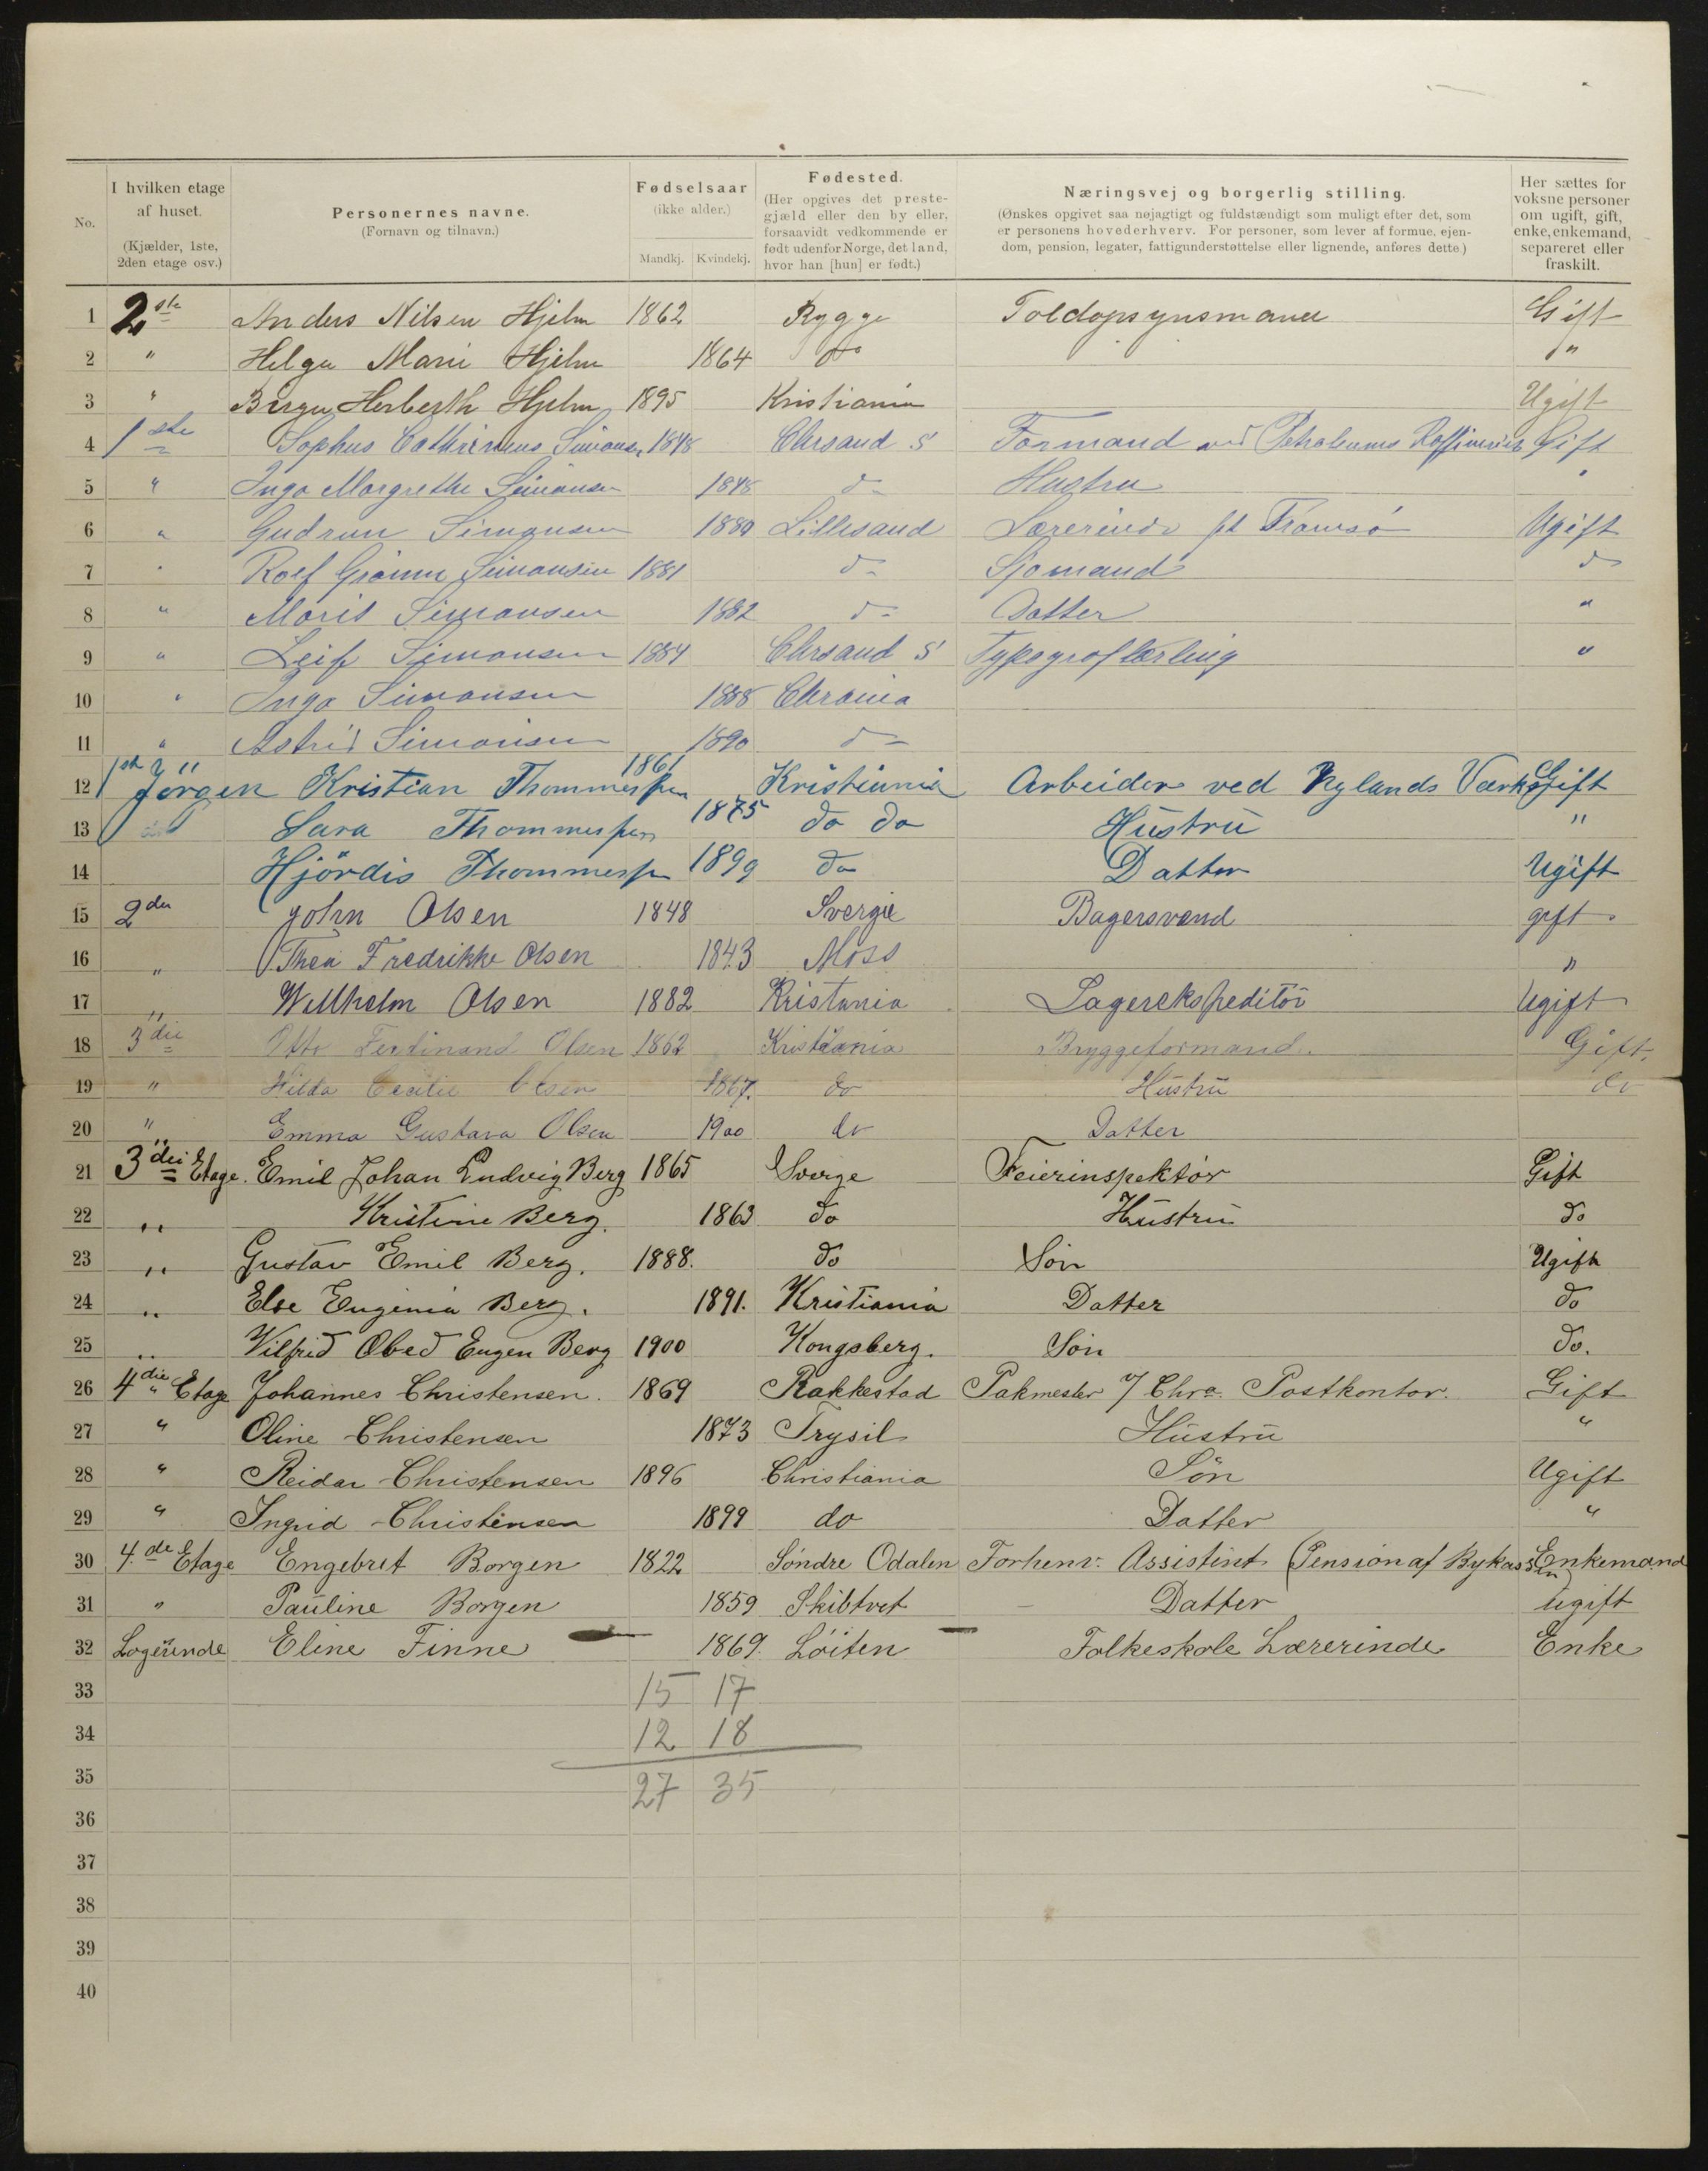 No.
I hvilken etage af huset. (Kjælder, 1ste, 2den etage osv.)
Personernes navne. (Fornavn og tilnavn.)
Fødselsaar (ikke alder.) Mandkj. Kvindekj.
Fødested. (Her opgives det prestegjæld eller den by eller, forsaavidt vedkommende er født udenfor Norge, det land, hvor han [hun] er født.)
Næringsvej og borgerlig stilling. (Ønskes opgivet saa nøjagtigt og fuldstændigt som muligt efter det, som er personens hovederhverv. For personer, som lever af formue, ejendom, pension, legater, fattigunderstøttelse eller lignende, anføres dette.)
Her sættes for voksne personer om ugift, gift, enke, enkemand, separeret eller fraskilt.
1 2ste Anders Nilsen Hjelm 1862 Rygge Toldopsynsmand Gift
2 " Helga Marie Hjelm 1864 do "
3 " Birger Herberth Hjelm 1895 Kristiania Ugift
4 1ste Sophus Simonsen 1848 Chrsand S Formand ved Petroleums Gift
5 " Inga Margrethe Simonsen 1848 do Hustru "
6 " Gudrun Simonsen 1880 Lillesand Lærerinde pt Tromsø Ugift
7 " Rolf Simonsen 1881 do Sjømand do
8 " Marit Simonsen 1882 do Datter "
9 " Leif Simonsen 1884 Chrsand S Typograflærling "
10 " Inga Simonsen 1888 Chrania
11 " Astrid Simonsen 1890 do
12 1ste Jörgen Kristian Thommessen 1861 Kristiania Arbeider ved Nylands Værksted Gift
13 Sara Thommessen 1875 do do Hustru "
14 Hjördis Thommessen 1899 do Datter Ugift
15 2den John Olsen 1848 Sverge Bagersvend gift
16 " Thea Fredrikke Olsen 1843 Moss "
17 " Willhelm Olsen 1882 Kristania Lagerekspeditör Ugift
18 3die Otto Ferdinand Olsen 1862 Kristiania Bryggeformand. Gift.
19 " Hilda Cecilie Olsen 1867. do Hustru do
20 " Emma Gustava Olsen 1900 do Datter
21 3die Etage. Emil Johan Ludvig Berg 1865 Sverge Feierinspektör Gift
22 " Kristine Berg. 1863 do Hustru do
23 " Gustav Emil Berg. 1888. do Sön Ugift
24 " Else Eugenia Berg. 1891. Kristiania Datter do
25 " Vilfrid Obed Eugen Berg 1900 Kongsberg. Sön do.
26 4die Etage Johannes Christensen. 1869 Rakkestad Pakmester v/ Chra. Postkontor. Gift
27 " Oline Christensen 1873 Trysil Hustru "
28 " Reidar Christensen 1896 Christiania Sön Ugift
29 " Ingrid Christensen 1899 do Datter "
30 4.de Etage Engebret Borgen 1822 Söndre Odalen Forhenv. Assistent (Pension af Bykassen) Enkemand
31 " Pauline Borgen 1859 Skibtvet - Datter Ugift
32 Logerende Eline Finne 1869. Löiten Folkeskole Lærerinde Enke
33 15 17
34 12 18
35 27 35
36
37
38
39
40